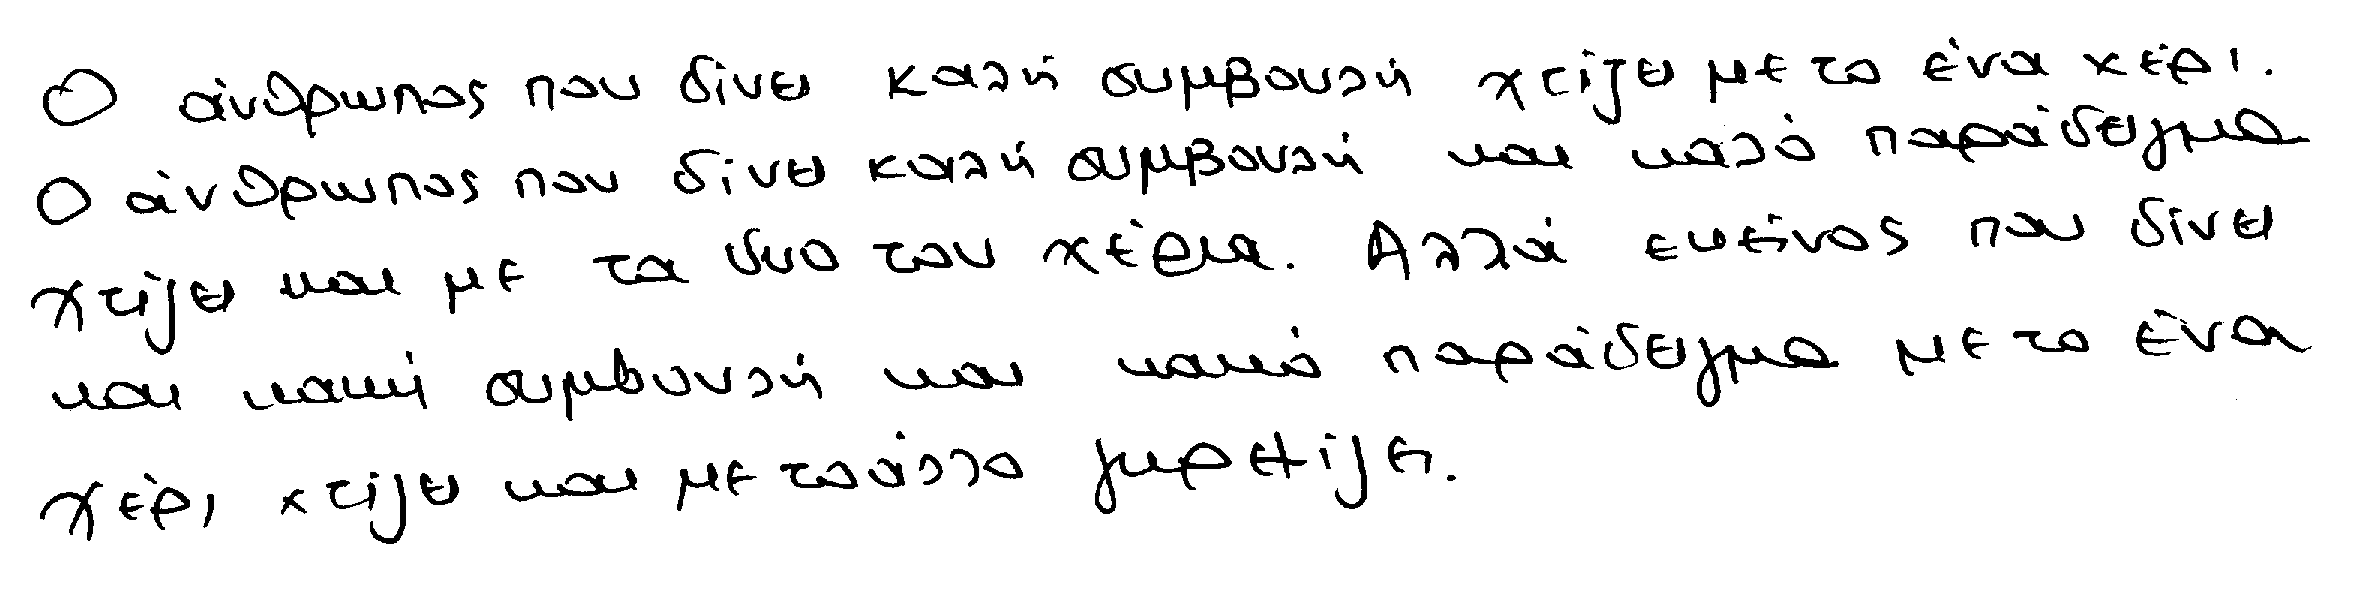 Ο άνθρωπος που δίνει καλή συμβουλή χτίζει με το ένα χέρι.
Ο άνθρωπος που δίνει καλή συμβουλή και καλό παράδειγμα
χτίζει και με τα δυο του χέρια. Αλλά εκείνος που δίνει
και κακή συμβουλή και κακό παράδειγμα με το ένα
χέρι χτίζει και με το άλλο γκρεμίζει.